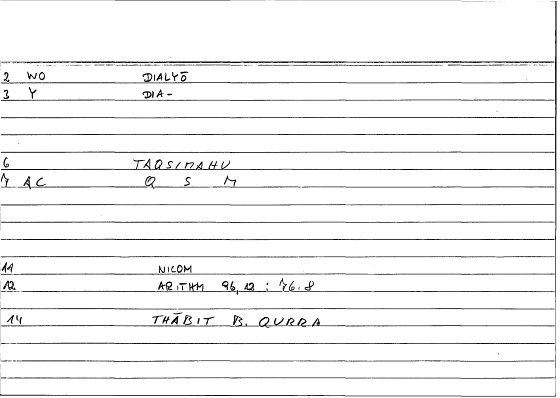 2 WO DIALYŌ
3 Y DIA-
6 TAQSIMAHU
7 AC Q S M
11 NICOM
12 ARITHM 96,12 : 76.8
14 THĀBIT B. QURRA